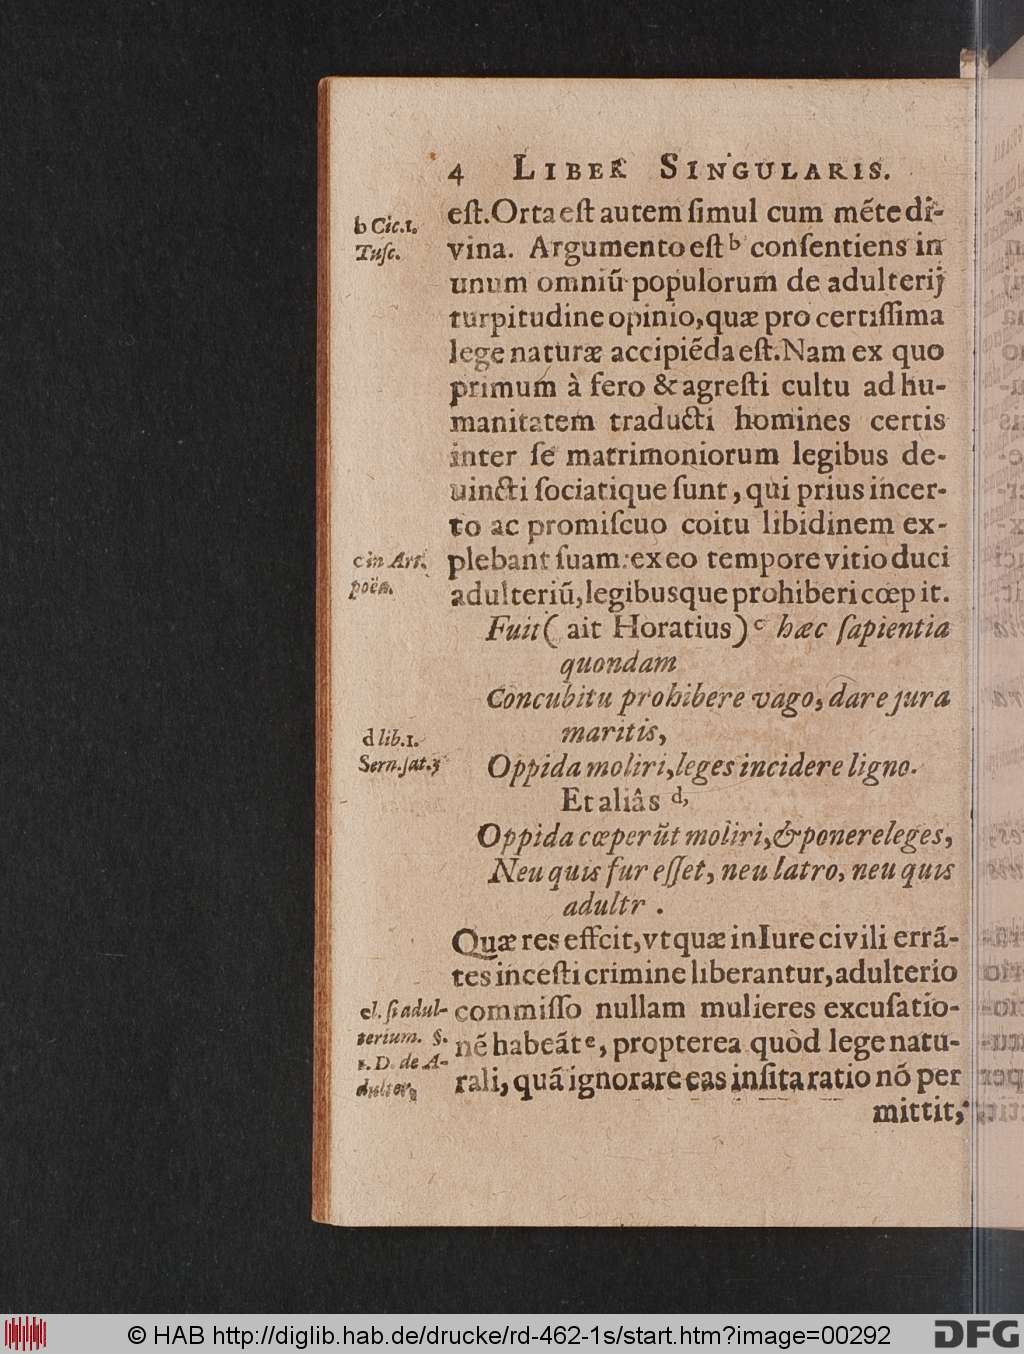 4 LIBER SINGULARIS.
eſt. Orta eſt autem ſimul cum mẽte di-
b Cic. 1.
Tuſc.
vina. Argumento eſt b conſentiens in
unum omniũ populorum de adulterij
turpitudine opinio, quæ pro certiſſima
lege naturæ accipiẽda eſt. Nam ex quo
primum à fero & agreſti cultu ad hu-
manitatem traducti homines certis
inter ſe matrimoniorum legibus de-
uincti ſociatique ſunt, qui prius incer-
to ac promiſcuo coitu libidinem ex-
c in Art.
poët.
plebant ſuam: ex eo tempore vitio duci
adulteriũ, legibusque prohiberi cœpit.
Fuit ( ait Horatius) c hæc ſapientia
quondam
Concubitu prohibere vago, dare jura
maritis,
d lib. 1.
Serm. ſat. 3
Oppida moliri, leges incidere ligno.
Et aliâs d,
Oppida cœperũt moliri, & ponere leges,
Neu quis fur eſſet, neu latro, neu quis
adultr .
Quæ res effcit, vt quæ in Iure civili errã-
tes inceſti crimine liberantur, adulterio
e l. ſi adul-
terium. §.
1. D. de A-
dulter.
commiſſo nullam mulieres excuſatio-
nẽ habeãt e, propterea quòd lege natu-
rali, quã ignorare eas inſita ratio nõ per
mittit,
© HAB http://diglib.hab.de/drucke/rd-462-1s/start.htm?image=00292
DFG